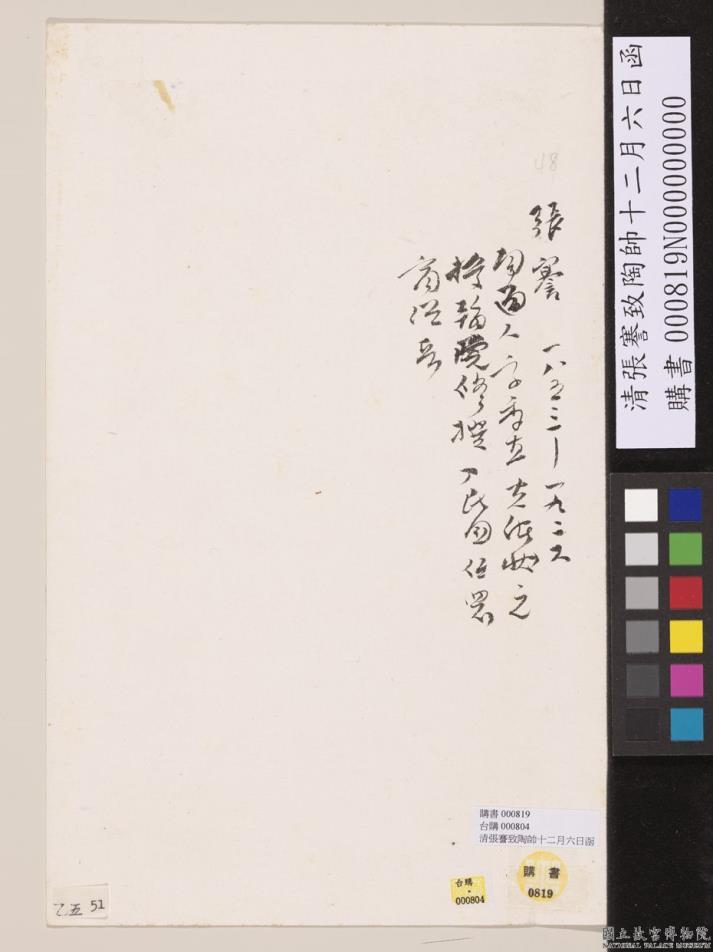 48
張謇 一八五三—一九二六
南通人字季直光緒狀元
授翰院修撰 民國任署
商總長
清張謇致陶帥十二月六日函
購書 000819N000000000
購書 000819
台購 000804
清張謇致陶帥十二月六日函
購書
0819
台購
000804
乙五 51
國立故宮博物院
NATIONAL PALACE MUSEUM